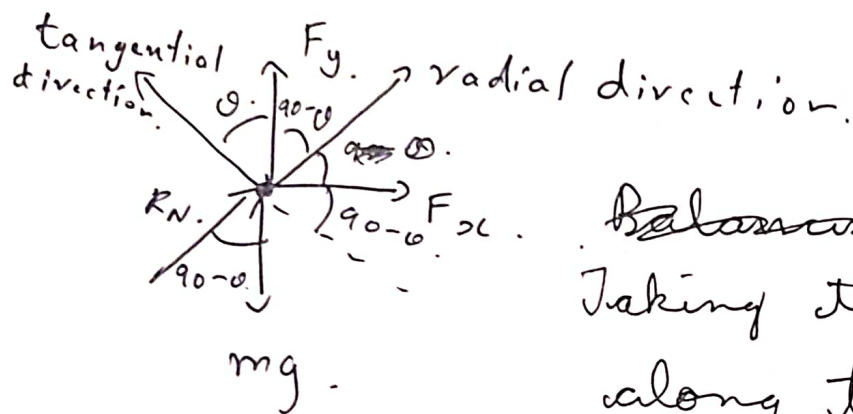 tangential
direction.
Fy.
radial direction.
θ.
90-θ
θ.
RN.
Fx.
90-θ
90-θ
mg.
Taking t
along t